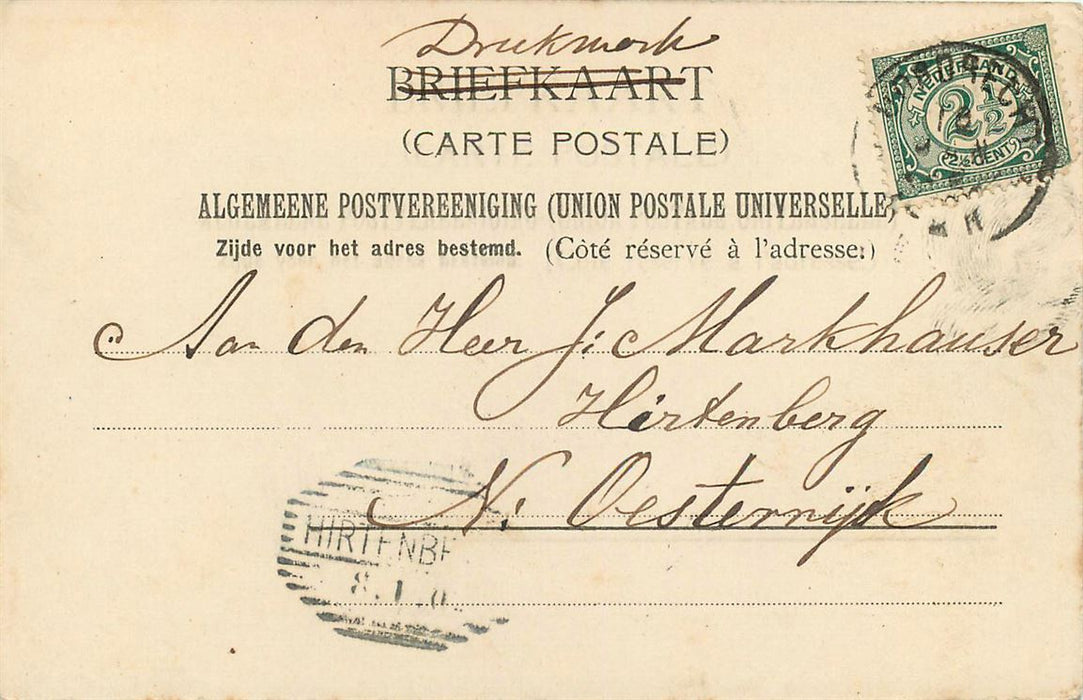 Drukwerk
BRIEFKAART
(CARTE POSTALE)
ALGEMEENE POSTVEREENIGING (UNION POSTALE UNIVERSELLE)
Zijde voor het adres bestemd. (Côté réservé à l'adresse.)
NEDERLAND
2½
2½ CENT
Aan den Heer J: Markhauser
Hirtenberg
N: Oesterrijk
HIRTENBE
8.1.0